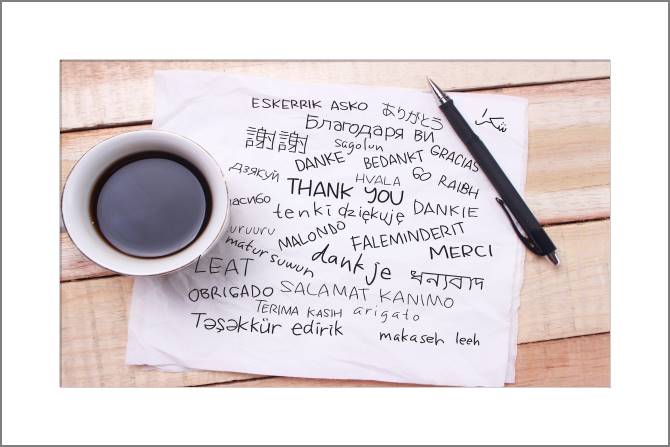 ESKERRIK ASKO ありがとう شكرا
Благодаря ВИ
謝謝 sagolun
DANKE BEDANKT GRACIAS
дзякуй HVALA GO RAIBH
THANK YOU
tenki dziękuję DANKIE
MALONDO FALEMINDERIT
matur suwun dank je MERCI
LEAT ধন্যবাদ
OBRIGADO SALAMAT KANIMO
TERIMA KASIH arigato
Təşəkkür edirik makaseh leeh